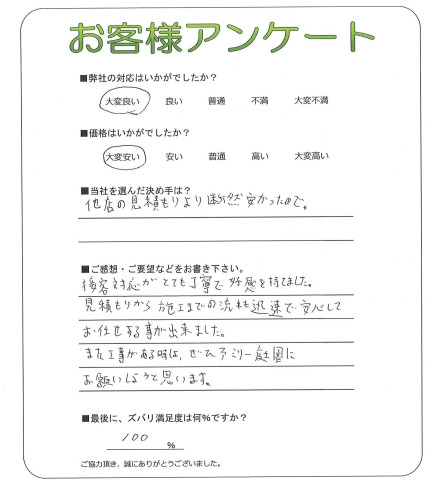 お客様アンケート
■弊社の対応はいかがでしたか？
大変良い 良い 普通 不満 大変不満
■価格はいかがでしたか？
大変安い 安い 普通 高い 大変高い
■当社を選んだ決め手は？
他店の見積もりより断然安かったので。
■ご感想・ご要望などをお書き下さい。
接客対応がとても丁寧で好感を持てました。
見積もりから施工までの流れも迅速で安心して
お任せする事が出来ました。
また工事がある時は、ぜひファミリー庭園に
お願いしようと思います。
■最後に、ズバリ満足度は何%ですか？
100 %
ご協力頂き、誠にありがとうございました。